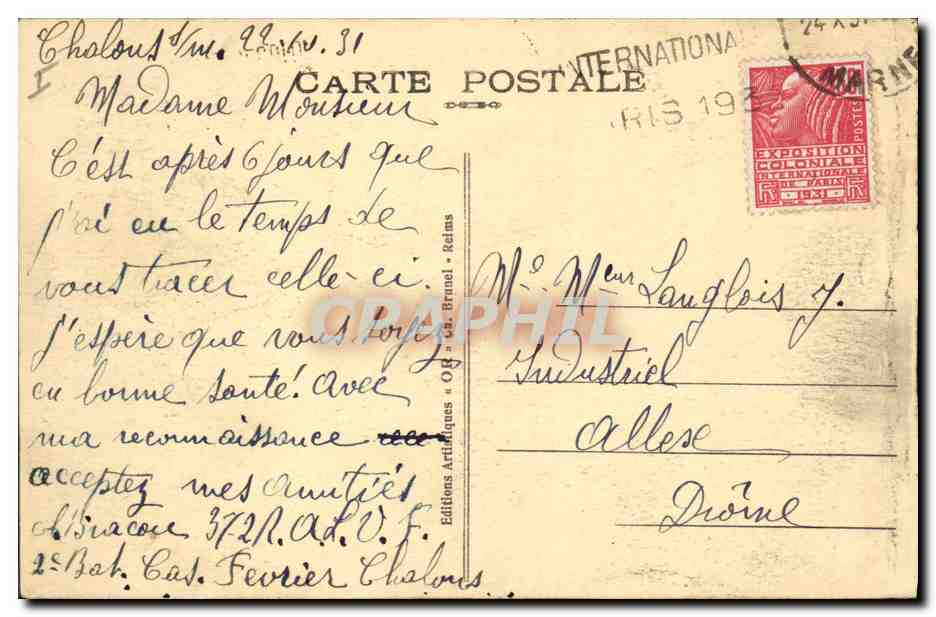 Chalons s/m. 22 31
I
CARTE POSTALE
INTERNATIONA
RIS 193
24 X
MARNE
Madame Monsieur
C'est après 6 jours que
j'ai eu le temps de
vous tracer celle-ci.
j'espère que vous soyez
en bonne santé. Avec
ma reconnaissance
acceptez mes amitiés
372 R. A. L. V. F.
2e Bat. Cas. Fevrier Chalons
Editions Artistiques « OR » Ch. Brunel - Reims
POSTES
EXPOSITION
COLONIALE
INTERNATIONALE
DE PARIS
RF 1931 RF
Me Meur Langlois J.
Industriel
Allex
Drôme
CRAPHIL